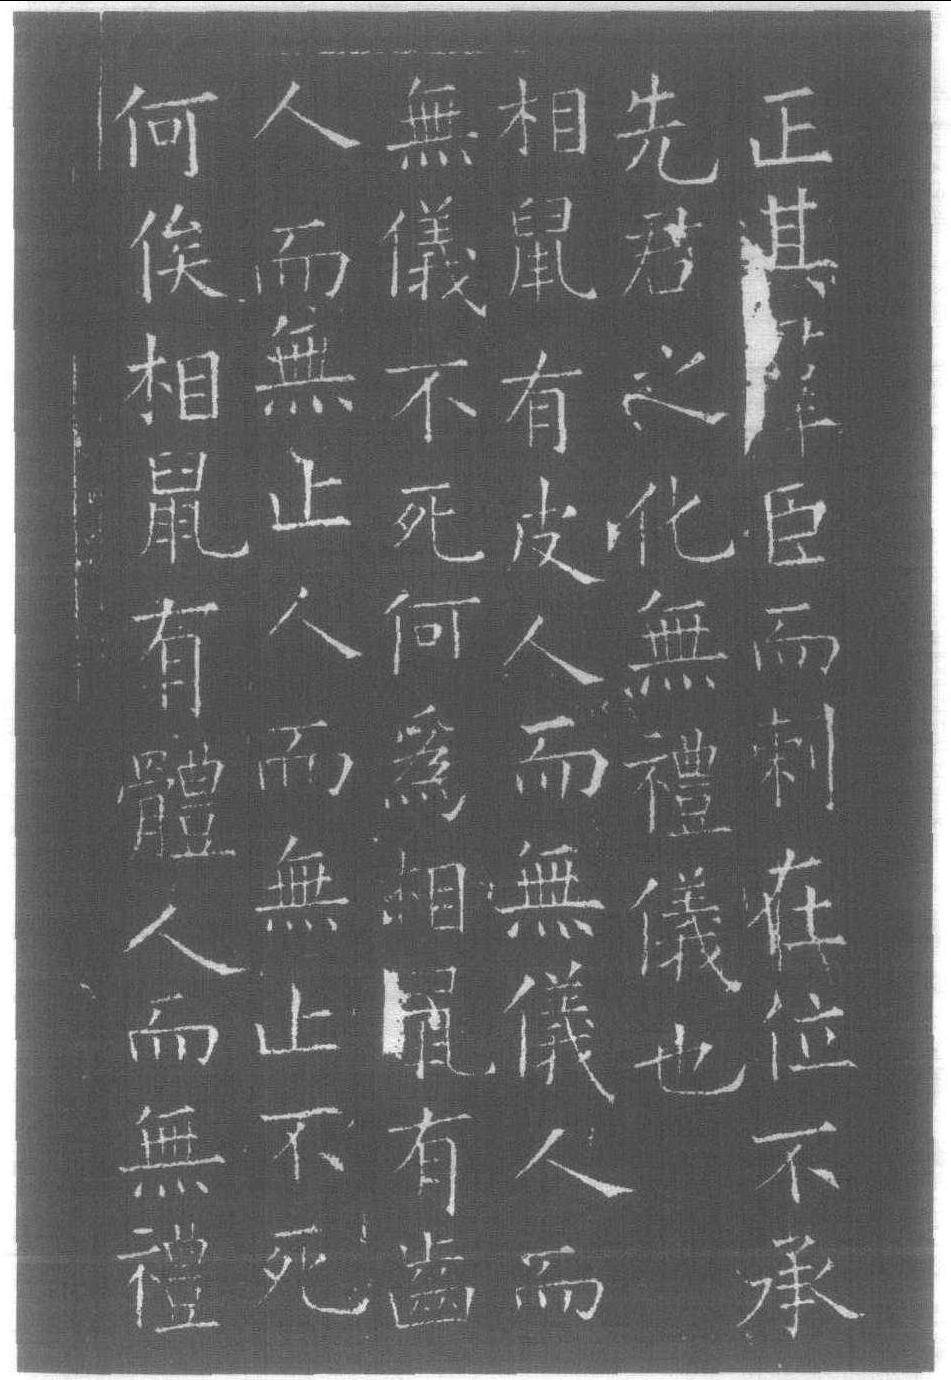 正其羣臣而刺在位不承
先君之化無禮儀也
相鼠有皮人而無儀人而
無儀不死何爲相鼠有齒
人而無止人而無止不死
何俟相鼠有體人而無禮